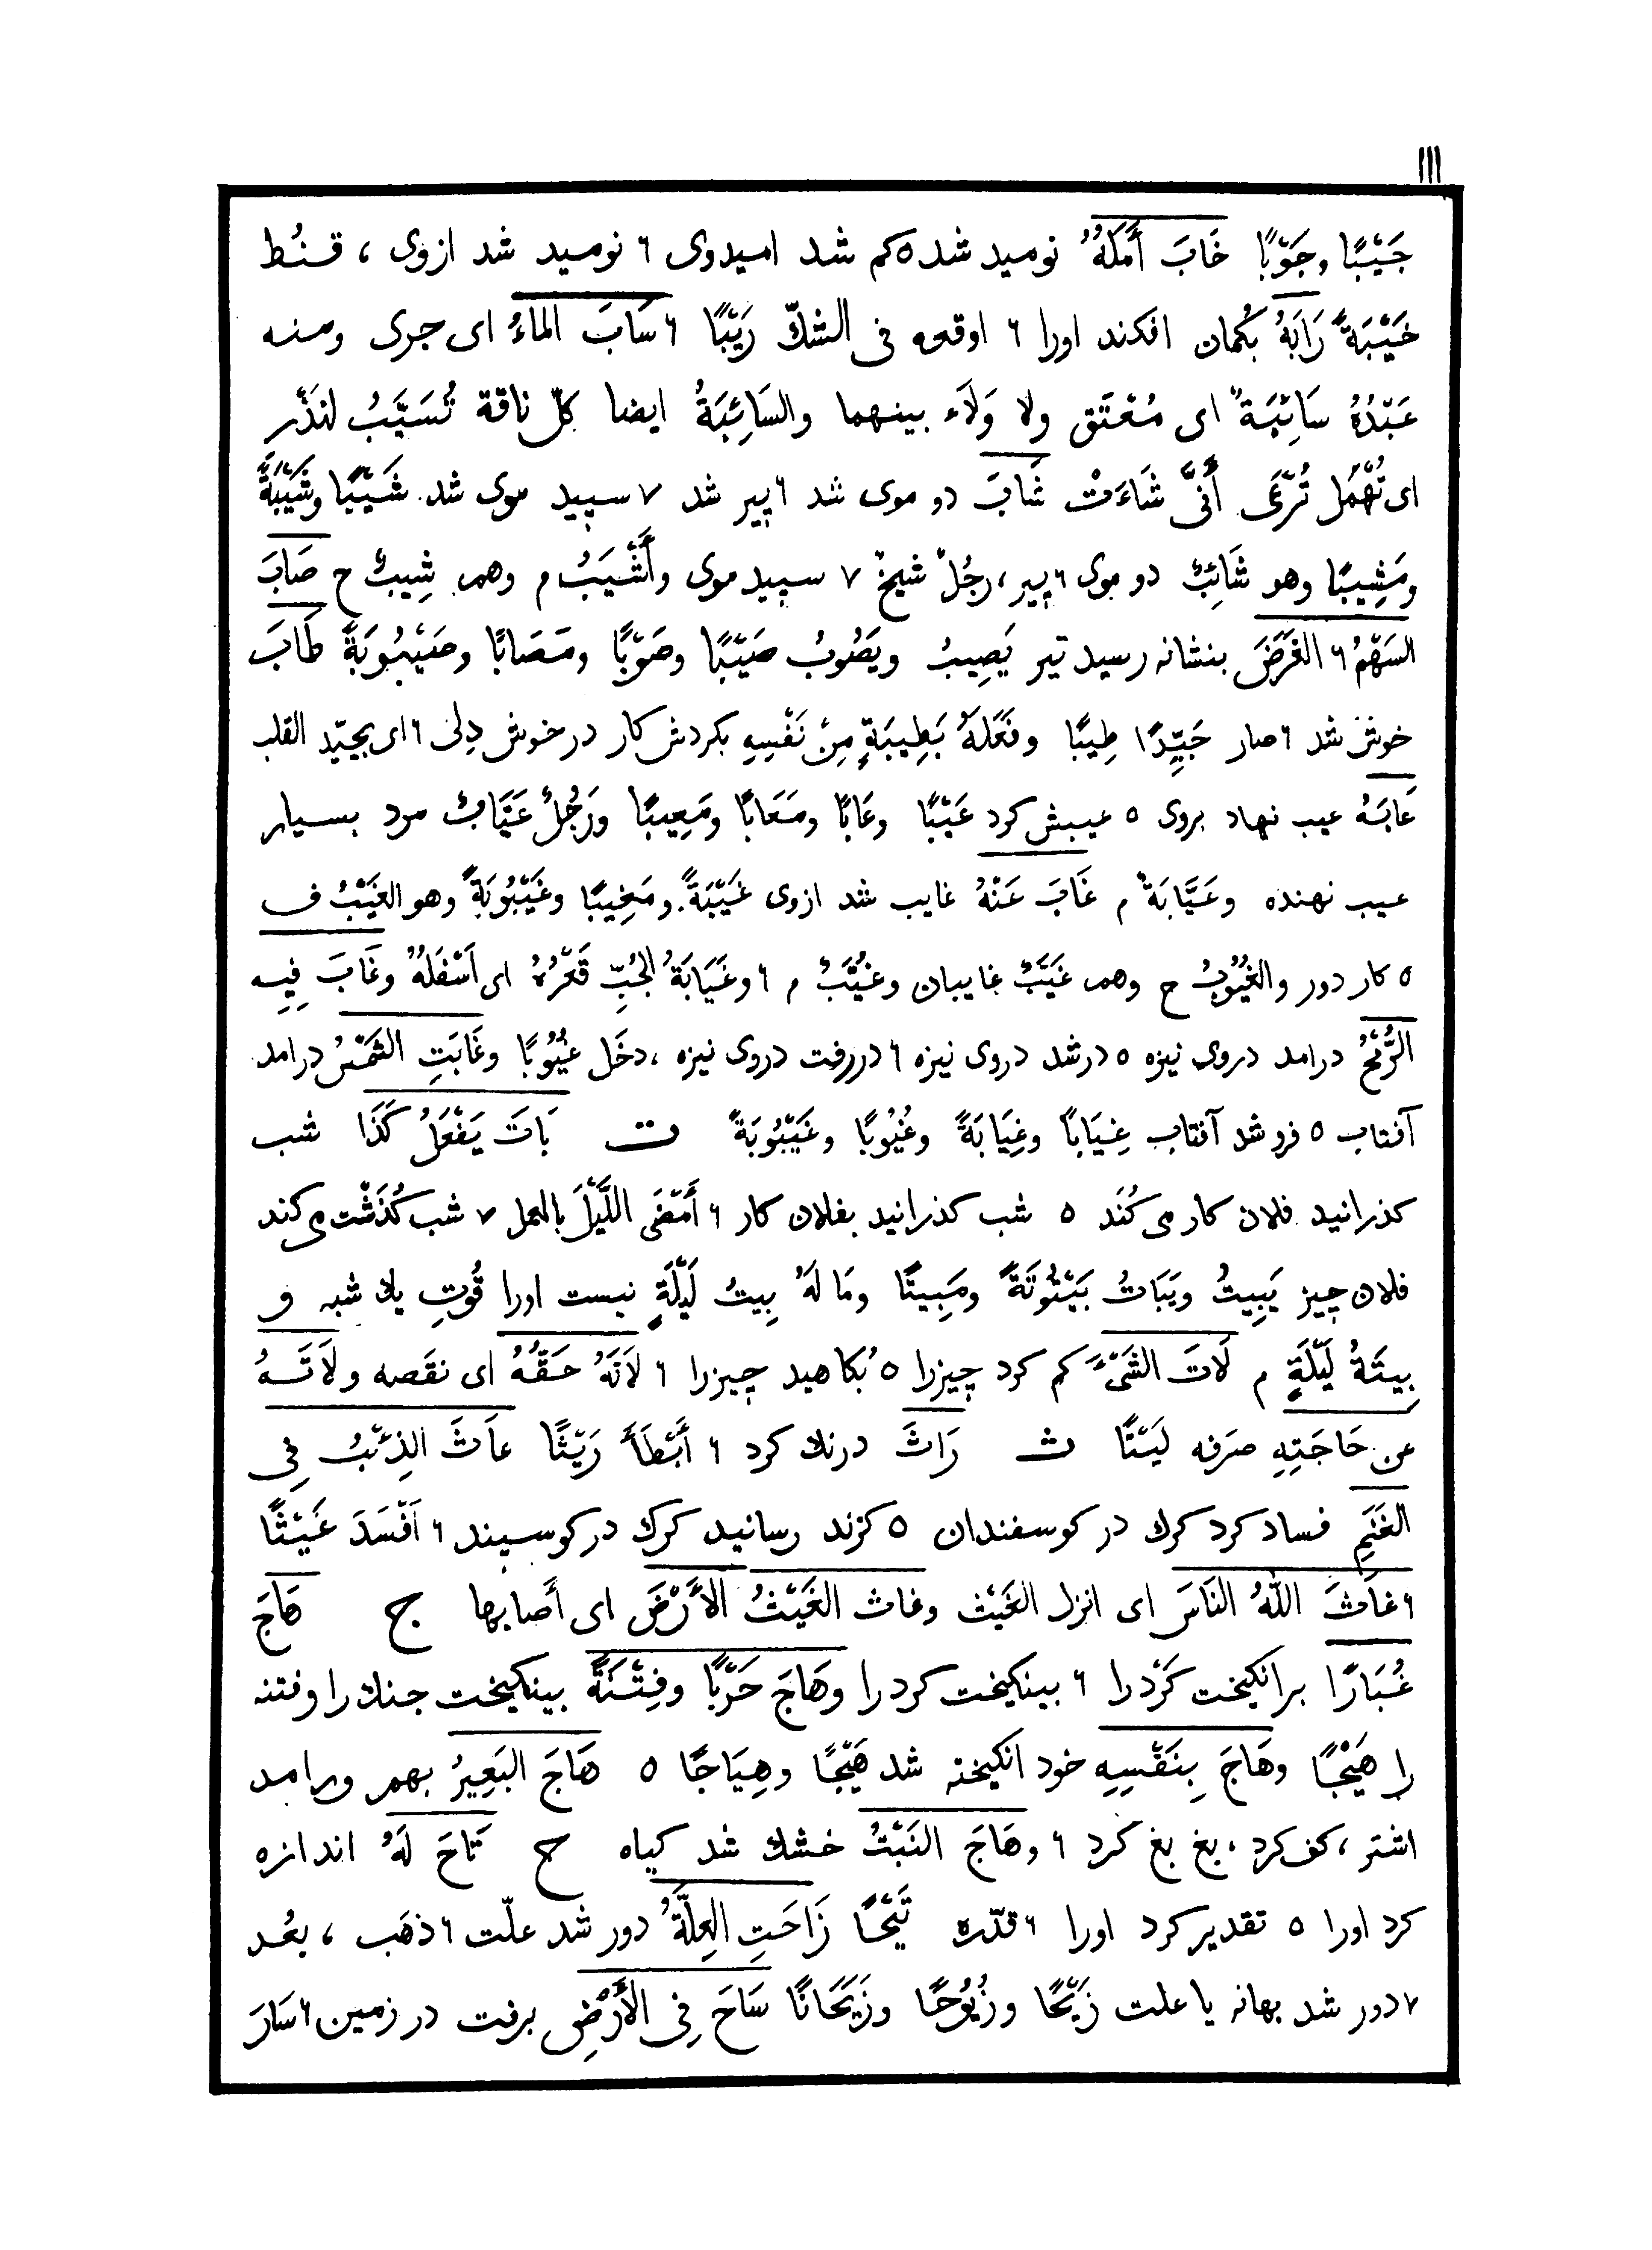 ١١١
جَيْبًا وجَوْبًا خَابَ أَمَلَهُ نوميد شد ٥ كم شد اميدوى ٦ نوميد شد ازوى ، قنُط
خَيْبَةً رَابَهُ بكمان افكند اورا ٦ اوقعه فى الشكّ رَيْبًا ٦ سَابَ الماءُ اى جرى ومنه
عَبْدُهُ سَائِبَةٌ اى مُعْتَق ولا وَلَاَء بينهما والسَائِبَةُ ايضا كلّ ناقة تُسَيَّبُ لنَذْر
اى تُهْمَل تُرْعَى أَنَّى شَاءَتْ شَابَ دو موى شد ٦ پير شد ٧ سپيد موى شد شَيْبًا وشَيْبَةً
ومَشِيبًا وهو شَائِبٌ دو موى ٦ پير ، رجُلٌ شيخٌ ٧ سپيد موى وأَشْيَبُ م وهم شِيبٌ ح صَابَ
السَهْمُ ٦ الغَرَضَ بنشانه رسيد تير يَصِيبُ ويَصُوبُ صَيْبًا وصَوْبًا ومَصَابًا وصَيْبُوبَةً طَابَ
خوش شد ٦ صار جَيِّدًا طِيبًا وفَعَلَهُ بَطِيبَةٍ مِنْ نَفْسِهِ بكردش كار در خوش دِلى ٦ اى بجيّد القلب
عَابَهُ عيب نهاد بروى ٥ عيبش كرد عَيْبًا وعَابًا ومَعَابًا ومَعِيبًا ورَجُلٌ عَيَّابٌ مرد بسيار
عيب نهنده وعَيَّابَةٌ م غَابَ عَنْهُ غايب شد ازوى غَيْبَةً ومَغِيبًا وغَيْبُوبَةً وهو الغَيْبُ ف
٥ كار دور والغُيُوبُ ح وهم غَيَبٌ غايبان وغُيَّبٌ م ٦ وغَيَابَةُ الجُبِّ قَعْرُهُ اى اَسْفَلَهُ وغَابَ فِيهِ
الرُّمْحُ درامد دروى نيزه ٥ درشد دروى نيزه ٦ دررفت دروى نيزه ، دخَل غُيُوبًا وغَابَتِ الشَمْسُ درامد
آفتاب ٥ فرو شد آفتاب غِيَابًا وغِيَابَةً وغُيُوبًا وغَيْبُوبَةً ت بَاتَ يَفْعَلُ كَذَا شب
كذرانيد فلان كار مى كُنَد ٥ شب كذرانيد بفلان كار ٦ أَمْضَى اللَّيْلَ بالعمل ٧ شب كُذَشْت مى كند
فلان چيز يَبِيتُ ويَبَاتُ بَيْتُوتَةً ومَبِيتًا ومَا لَهُ بِيتُ لَيْلَةٍ نيست اورا قُوتِ يك شبه و
بِيتَةُ لَيْلَةٍ م لَاتَ الشَىْءَ كم كرد چيزرا ٥ بُكاهيد چيزرا ٦ لَاتَهُ حَقَّهُ اى نقَصه ولَاتَهُ
عن حَاجَتِهِ صرَفه لَيْتًا ث رَاثَ درنك كرد ٦ أَبْطَأَ رَيْثًا عَاثَ الذِئْبُ فِى
الغَنَمِ فساد كرد كرك در كوسفندان ٥ كزند رسانيد كرك در كوسپند ٦ اَفْسَدَ عَيْثًا
٦ غاثَ اللهُ النَاسَ اى انزل الغَيْث وغاث الغَيْثُ الأَرْضَ اى أَصابها ج هَاجَ
غُبَارًا برانكيخت كَرْد را ٦ بينكيخت كرد را وهَاجَ حَرْبًا وفِتْنَةً بينكيخت جنك را وفتنه
را هَيْجًا وهَاجَ بِنَفْسِهِ خود انكيخته شد هَيْجًا وهِيَاجًا ٥ هَاجَ البَعِيرُ بهم ورامد
اشتر ، كف كرد ، بغ بغ كرد ٦ وهَاجَ النَبْتُ خشك شد كياه ح تَاحَ لَهُ اندازه
كرد اورا ٥ تقدير كرد اورا ٦ قدّره تَيْحًا زَاحَتِ العِلَّةُ دور شد علّت ٦ ذهَب ، بعُد
٧ دور شد بهانه يا علت زَيْحًا وزُيُوحًا وزَيَحَانًا سَاحَ فِى الأَرْضِ برفت در زمين ٦ سَارَ